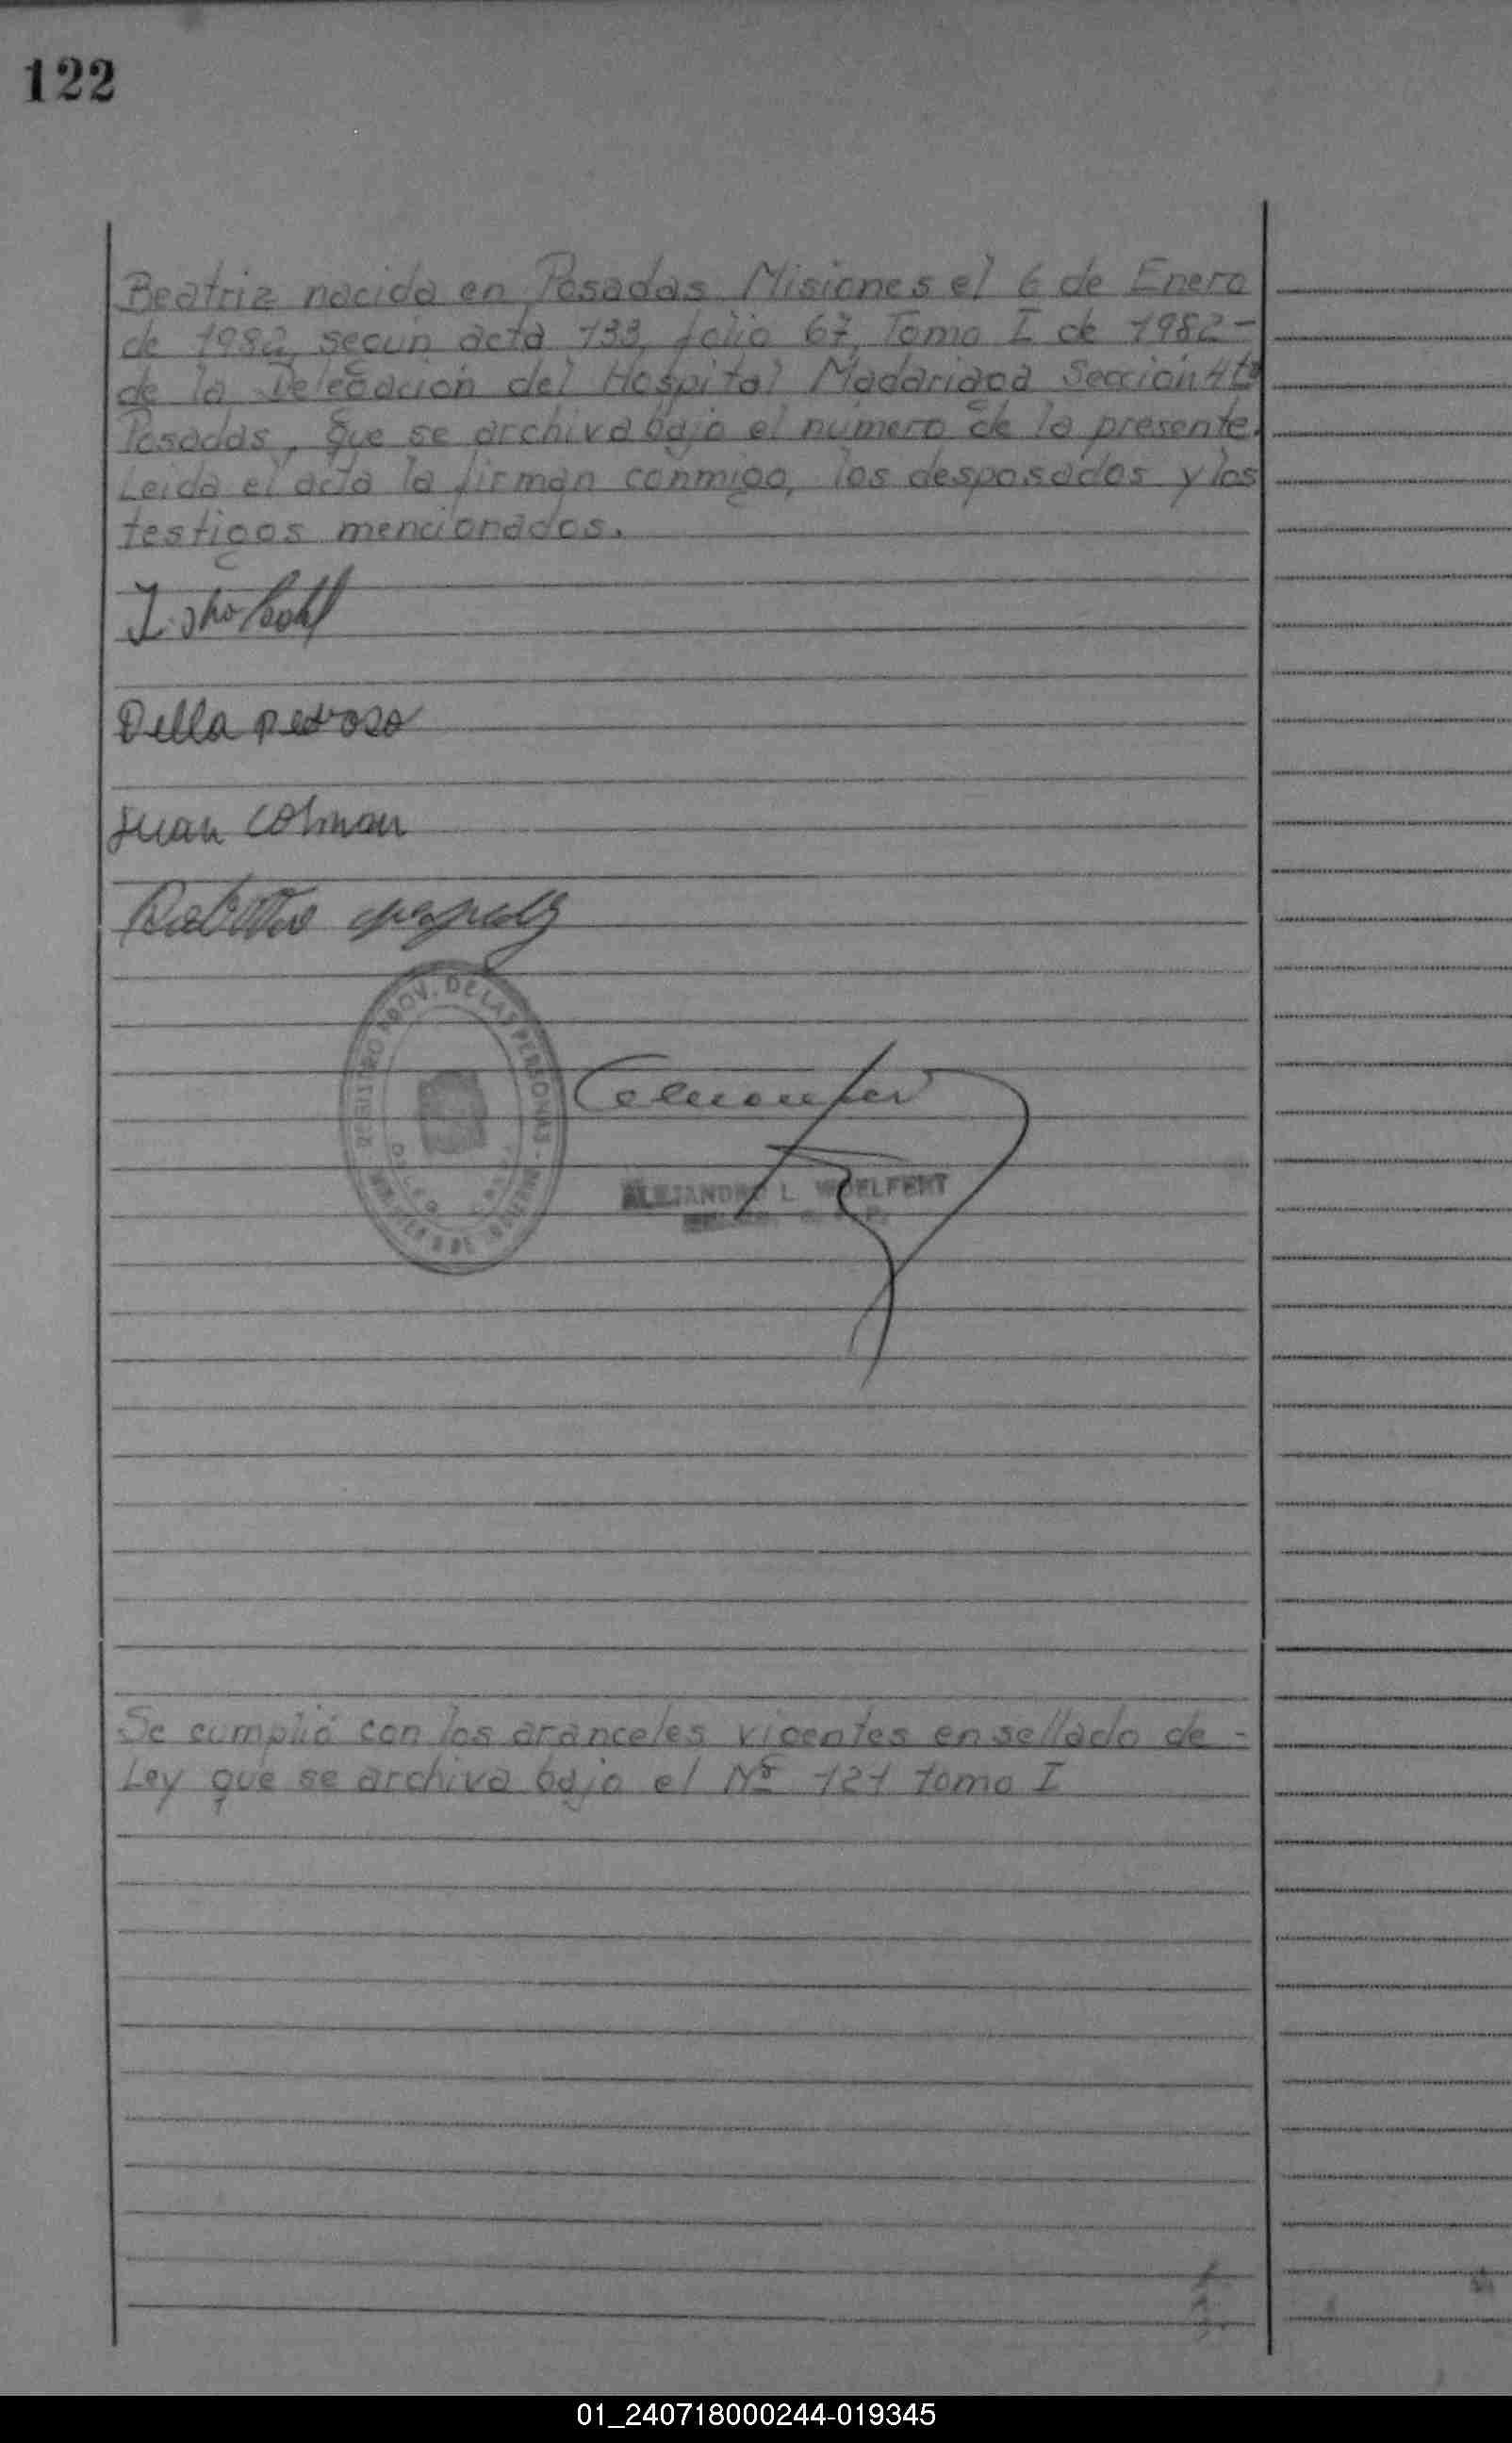 122
Beatriz nacida en Posadas Misiones el 6 de Enero
de 1982, según acta 133, folio 67, Tomo I de 1982-
de la Delegación del Hospital Madariaga Sección 4ta
Posadas, que se archiva bajo el número de la presente.
Leida el acta la firman conmigo, los desposados y los
testigos mencionados.
Della pedroso
Juan Colman
REGISTRO PROV. DE LAS PERSONAS - MISIONES
ALEJANDRO L. WOELFERT
Se cumplió con los aranceles vigentes en sellado de -
Ley que se archiva bajo el Nº 121 tomo I
01_240718000244-019345